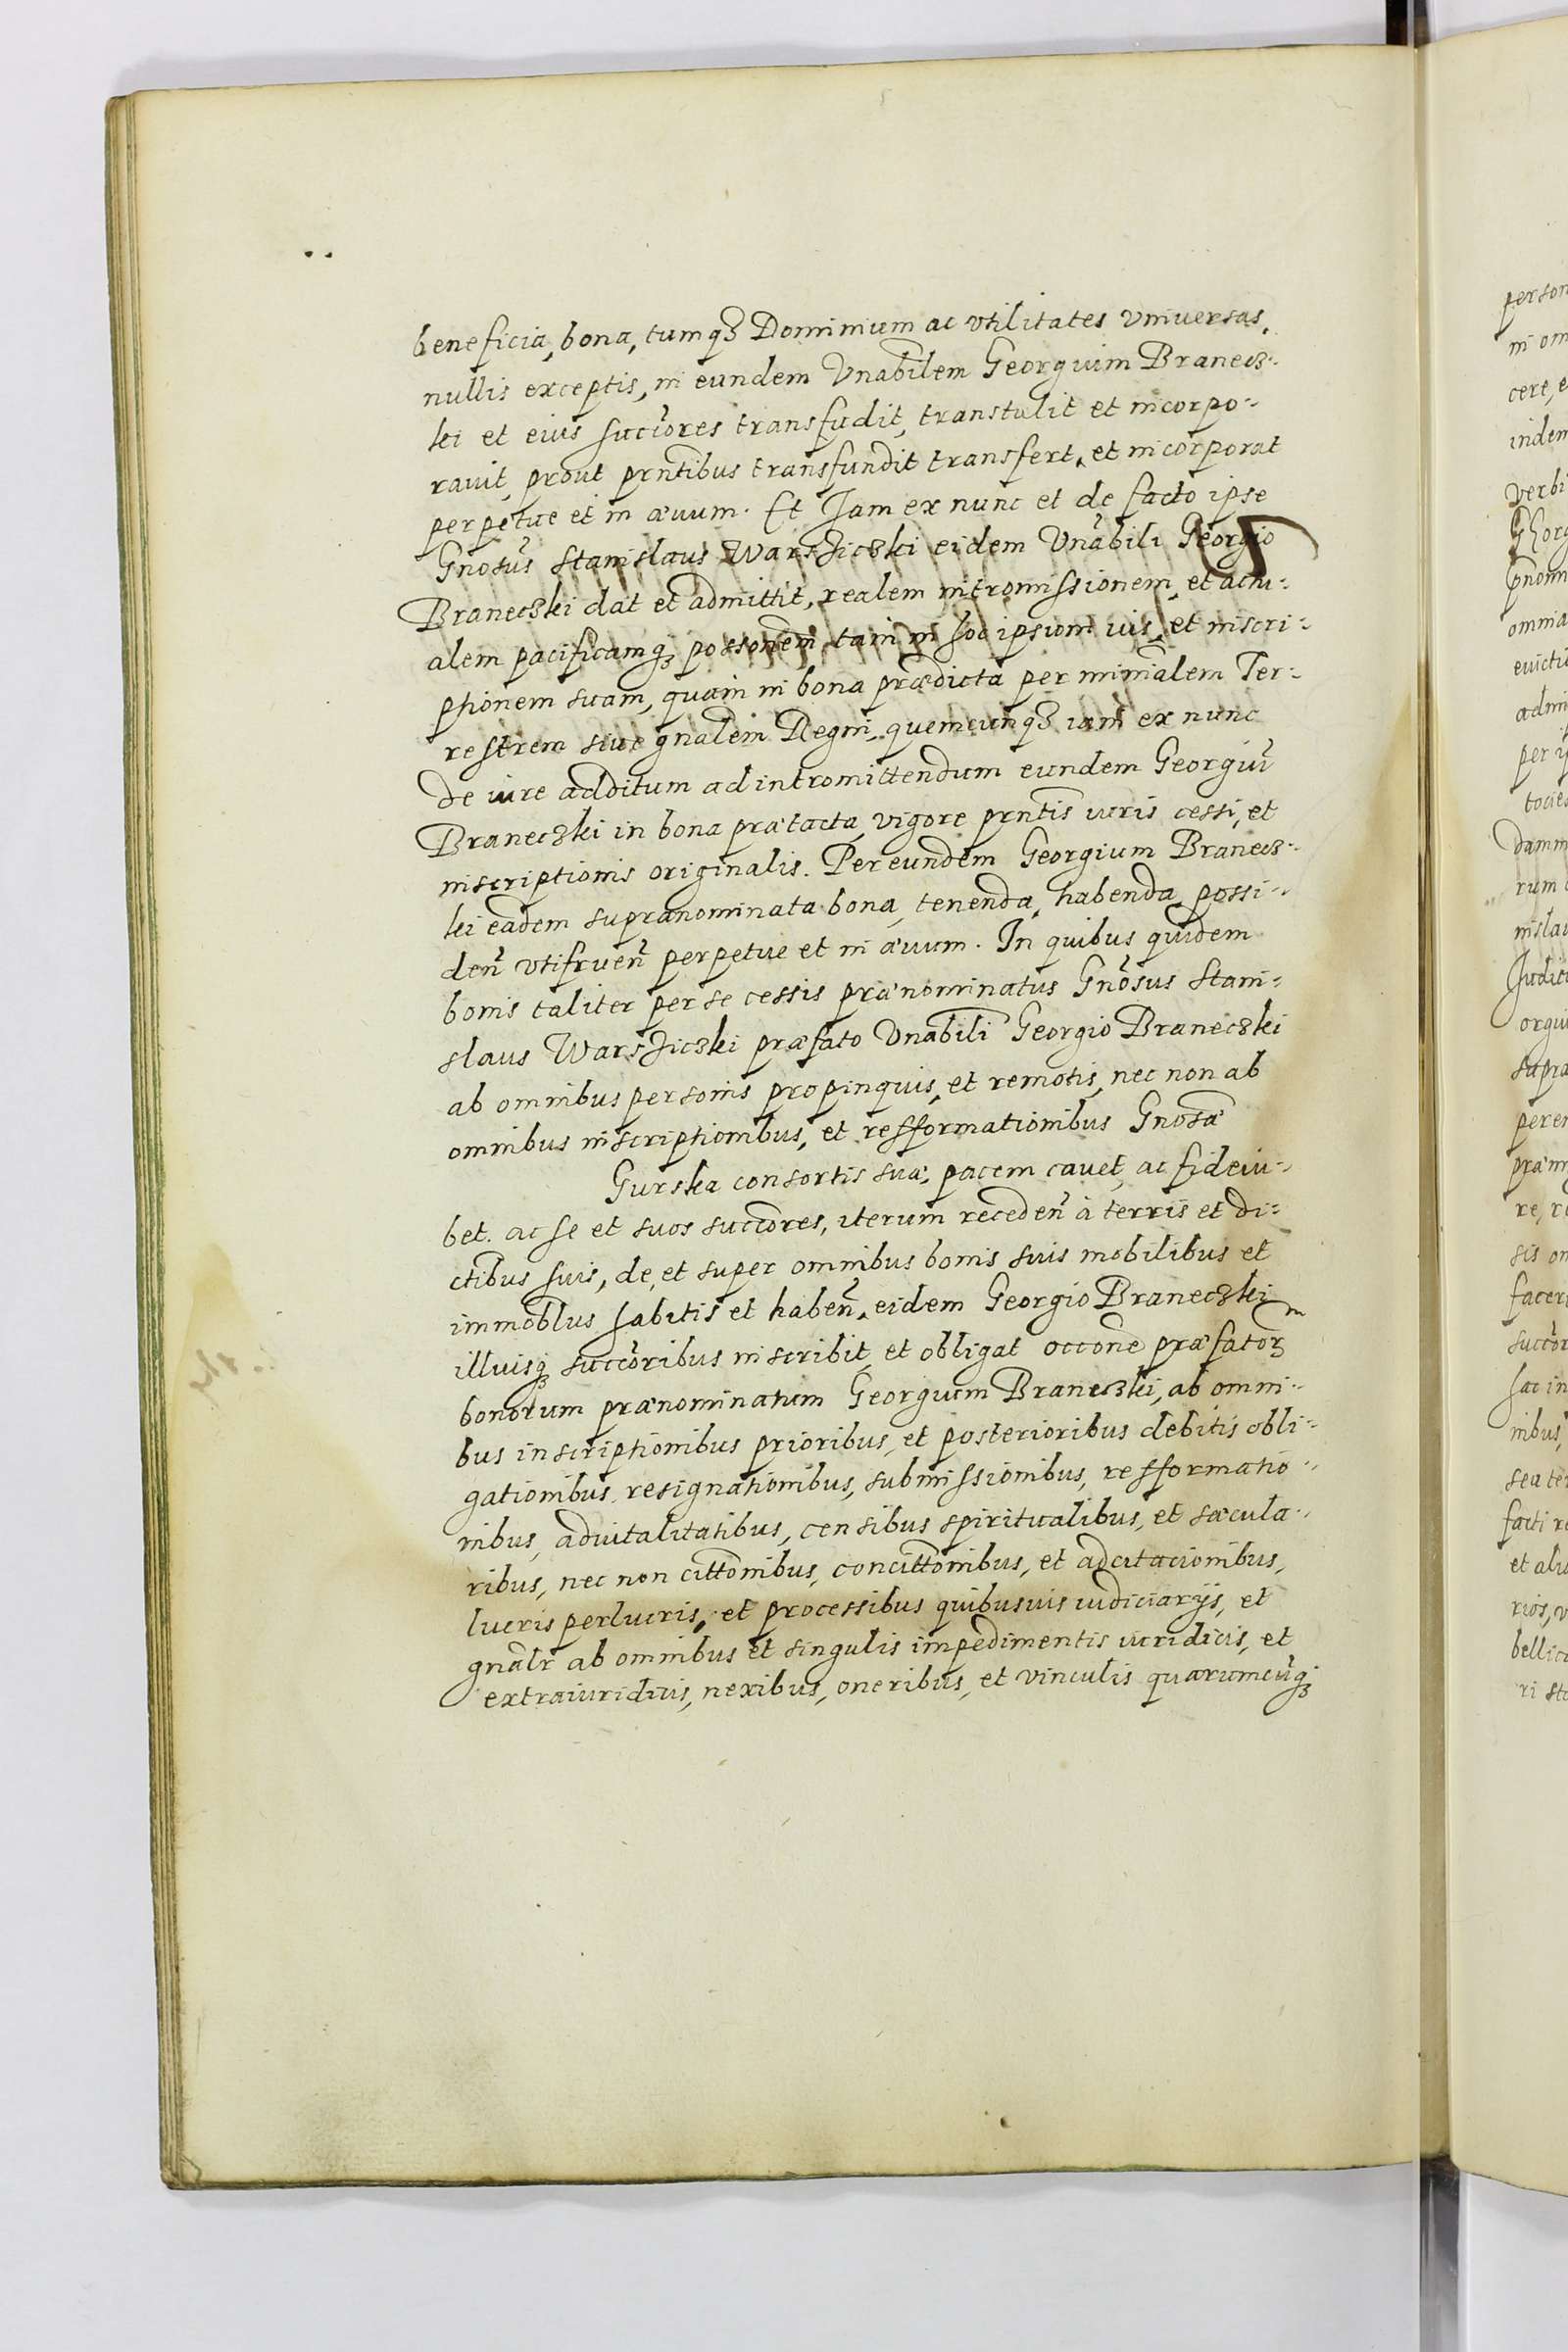 beneficia, bona, tumqȝ Dominium ac vtilitates vniuersas,
nullis exceptis, in eundem Vnabilem Georguim Branecz-
ki et eius succores transfudit, transtulit et incorpo-
rauit, prout prntibus transfundit transfert, et incorporat
perpetue et in æuum. Et Jam ex nunc et de facto ipse
Gnosus Stanislaus Warsziczki eidem Vnabili Georgio
Braneczki dat et admittit, realem intromissionem, et actu-
alem pacificamqȝ possonem tam in hoc ipsum ius, et inscri-
ptionem suam, quam in bona prædicta per minialem Ter-
restrem siue gnalem Regni, quemcunqȝ iam ex nunc
de iure additum ad intromittendum eundem Georgiu
Braneczki in bona prætacta vigore prntis iuris cessi, et
inscriptionis originalis. Per eundem Georgium Branecz-
ki eadem supranominata bona, tenenda, habenda, possi-
den vtifruen perpetue et in æuum. In quibus quidem
bonis taliter per se cessis prænominatus Gnosus Stani-
slaus Warsziczki præfato Vnabili Georgio Braneczki
ab omnibus personis propinquis, et remotis, nec non ab
omnibus inscriptionibus, et refformationibus Gnosæ
Gurska consortis suæ, pacem cauet, ac fideiu-
bet. ac se et suos succores, iterum receden à terris et di-
ctibus suis, de, et super omnibus bonis suis mobilibus et
immoblus habitis et haben, eidem Georgio Braneczki
illuisqȝ succoribus inscribit et obligat occone præfatorꝫ
bonorum prænominatum Georgium Braneczki, ab omni-
bus inscriptionibus prioribus, et posterioribus debitis obli-
gationibus, resignationibus, submissionibus, refformatio-
nibus, aduitalitatibus, censibus spiritualibus, et sæcula-
ribus, nec non cittonibus, concittonibus, et adcitacionibus,
lucris perlucris, et processibus quibusuis iudiciarijs, et
gnalr ab omnibus et singulis impedimentis iuridicis, et
extraiuridicis, nexibus, oneribus, et vinculis quarumcuqȝ